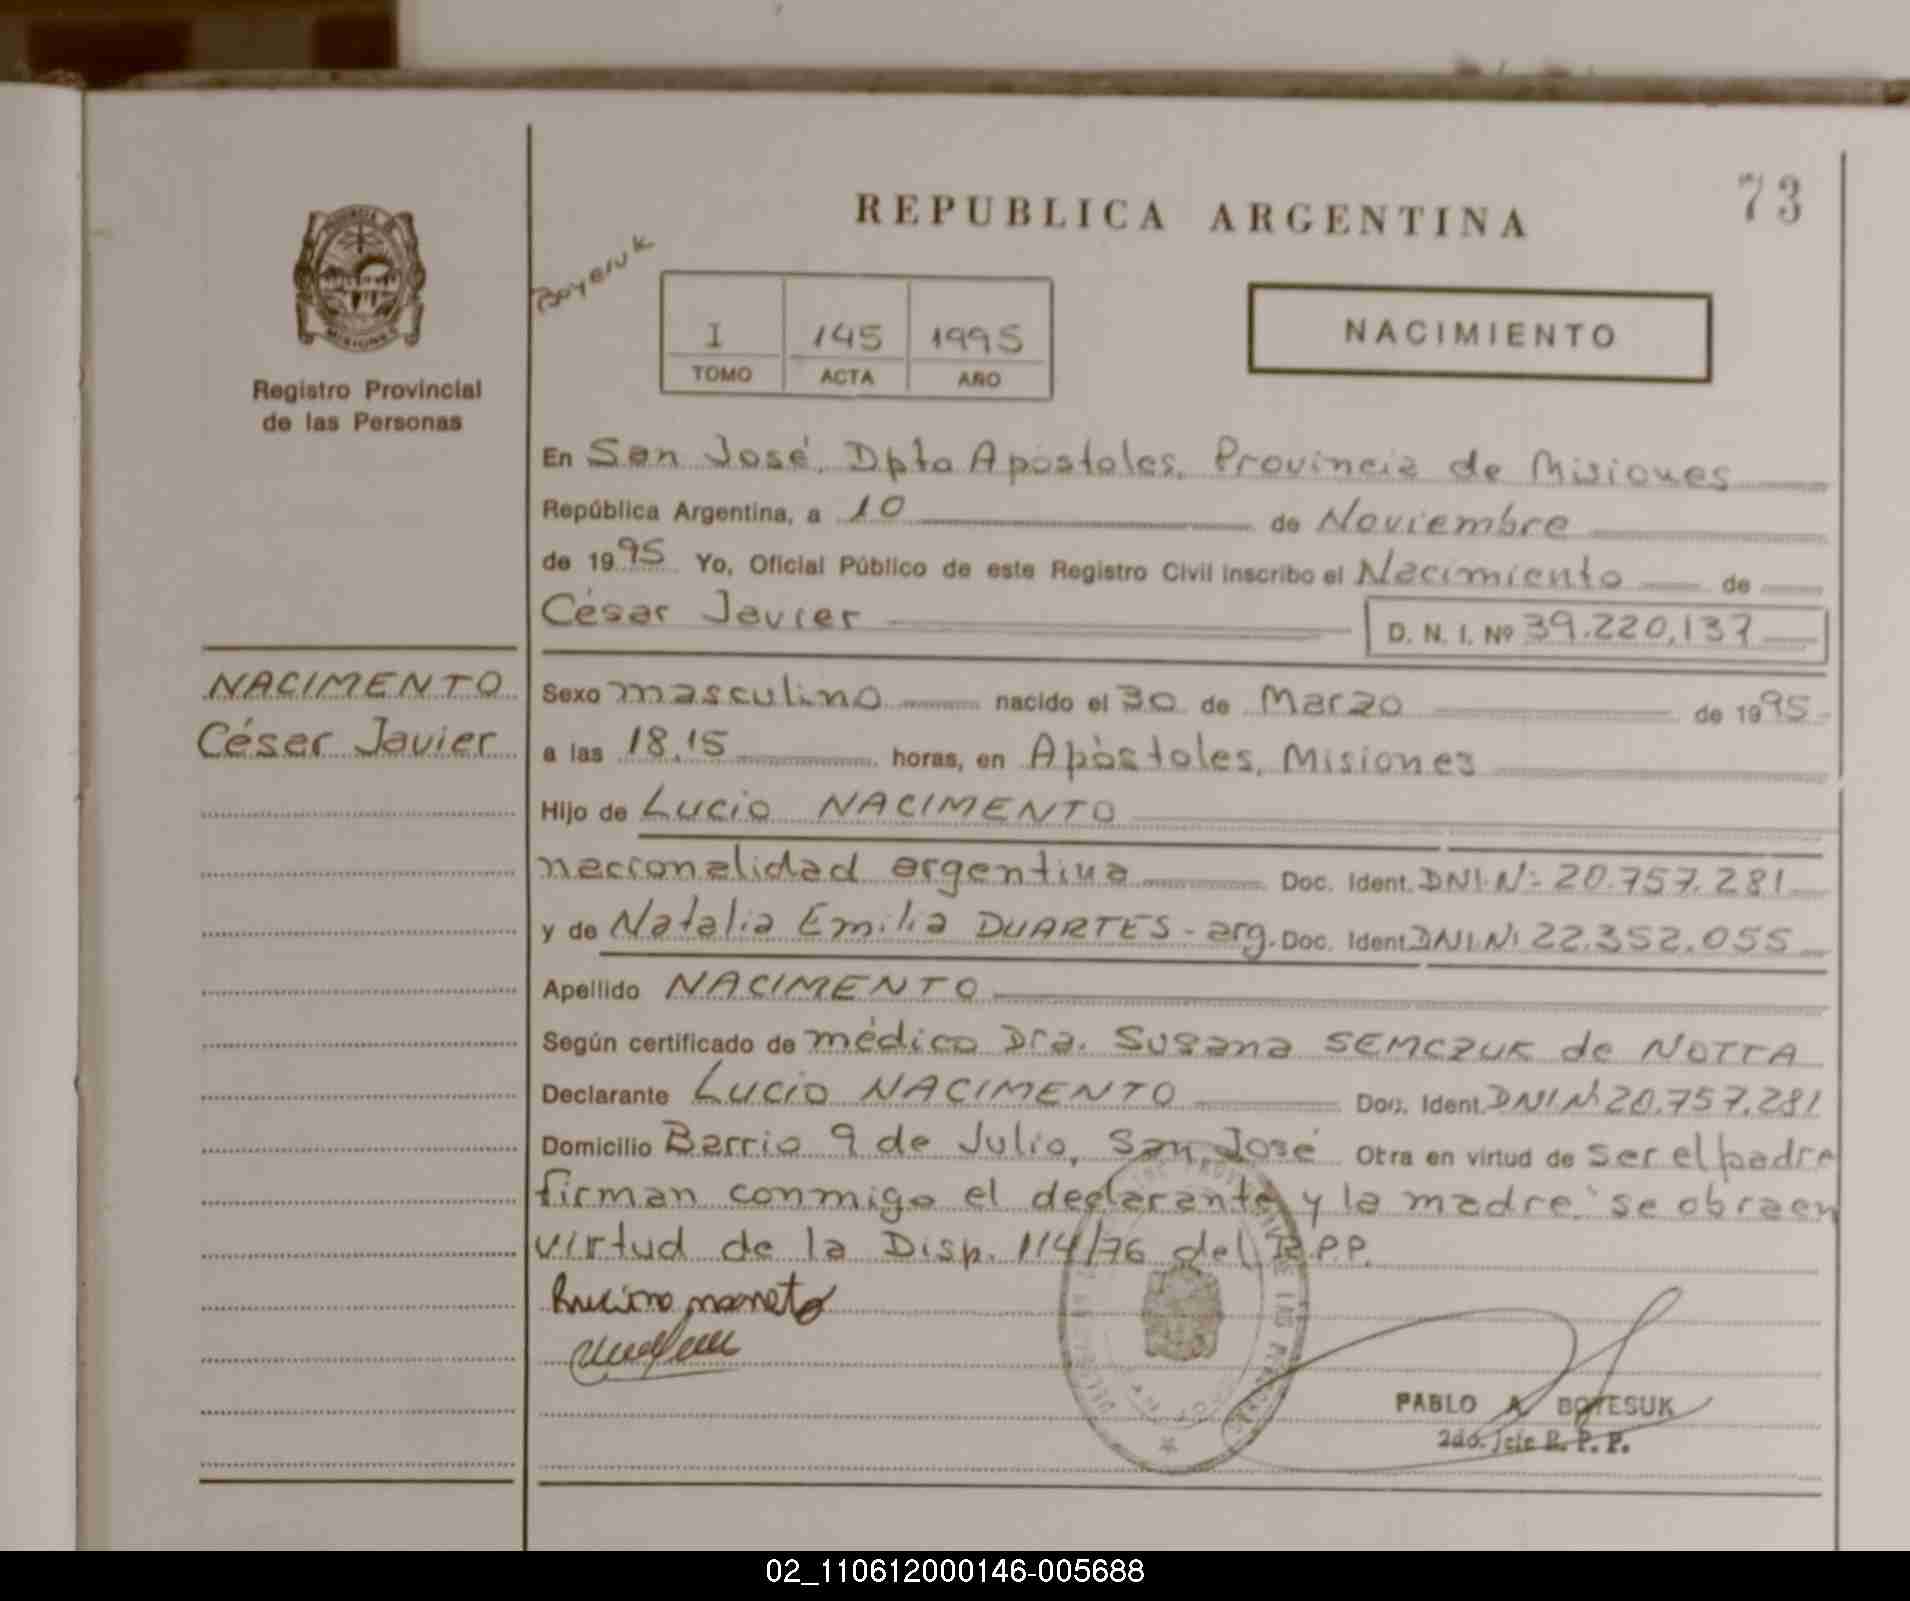 REPUBLICA ARGENTINA
73
Registro Provincial
de las Personas
I 145 1995
TOMO ACTA AÑO
NACIMIENTO
En San José, Dpto Apóstoles, Provincia de Misiones
República Argentina, a 10 de Noviembre
de 1995 Yo, Oficial Público de este Registro Civil inscribo el Nacimiento de
César Javier D. N. I. Nº 39.220,137
NACIMENTO
César Javier
Sexo masculino nacido el 30 de Marzo de 1995
a las 18,15 horas, en Apóstoles, Misiones
Hijo de Lucio NACIMENTO
nacionalidad argentina Doc. Ident. DNI.Nº 20.757.281
y de Natalia Emilia DUARTES - arg. Doc. Ident DNI.Nº 22.352.055
Apellido NACIMENTO
Según certificado de médico Dra. Susana SEMCZUK de NOTTA
Declarante LUCIO NACIMENTO Doc. Ident. DNI Nº 20.757.281
Domicilio Barrio 9 de Julio, San José Otra en virtud de ser el padre
firman conmigo el declarante y la madre se obra en
virtud de la Disp. 114/76 del R.P.P.
PABLO A. BOYESUK
2do. Jefe R. P. P.
02_110612000146-005688